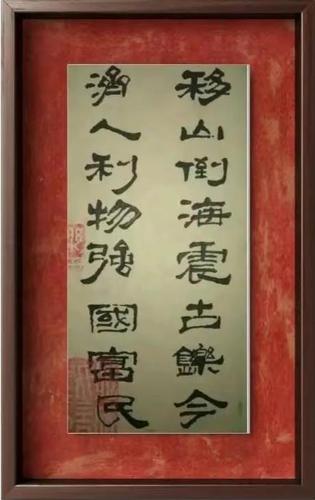 移山倒海震古鑠今
濟人利物強國富民